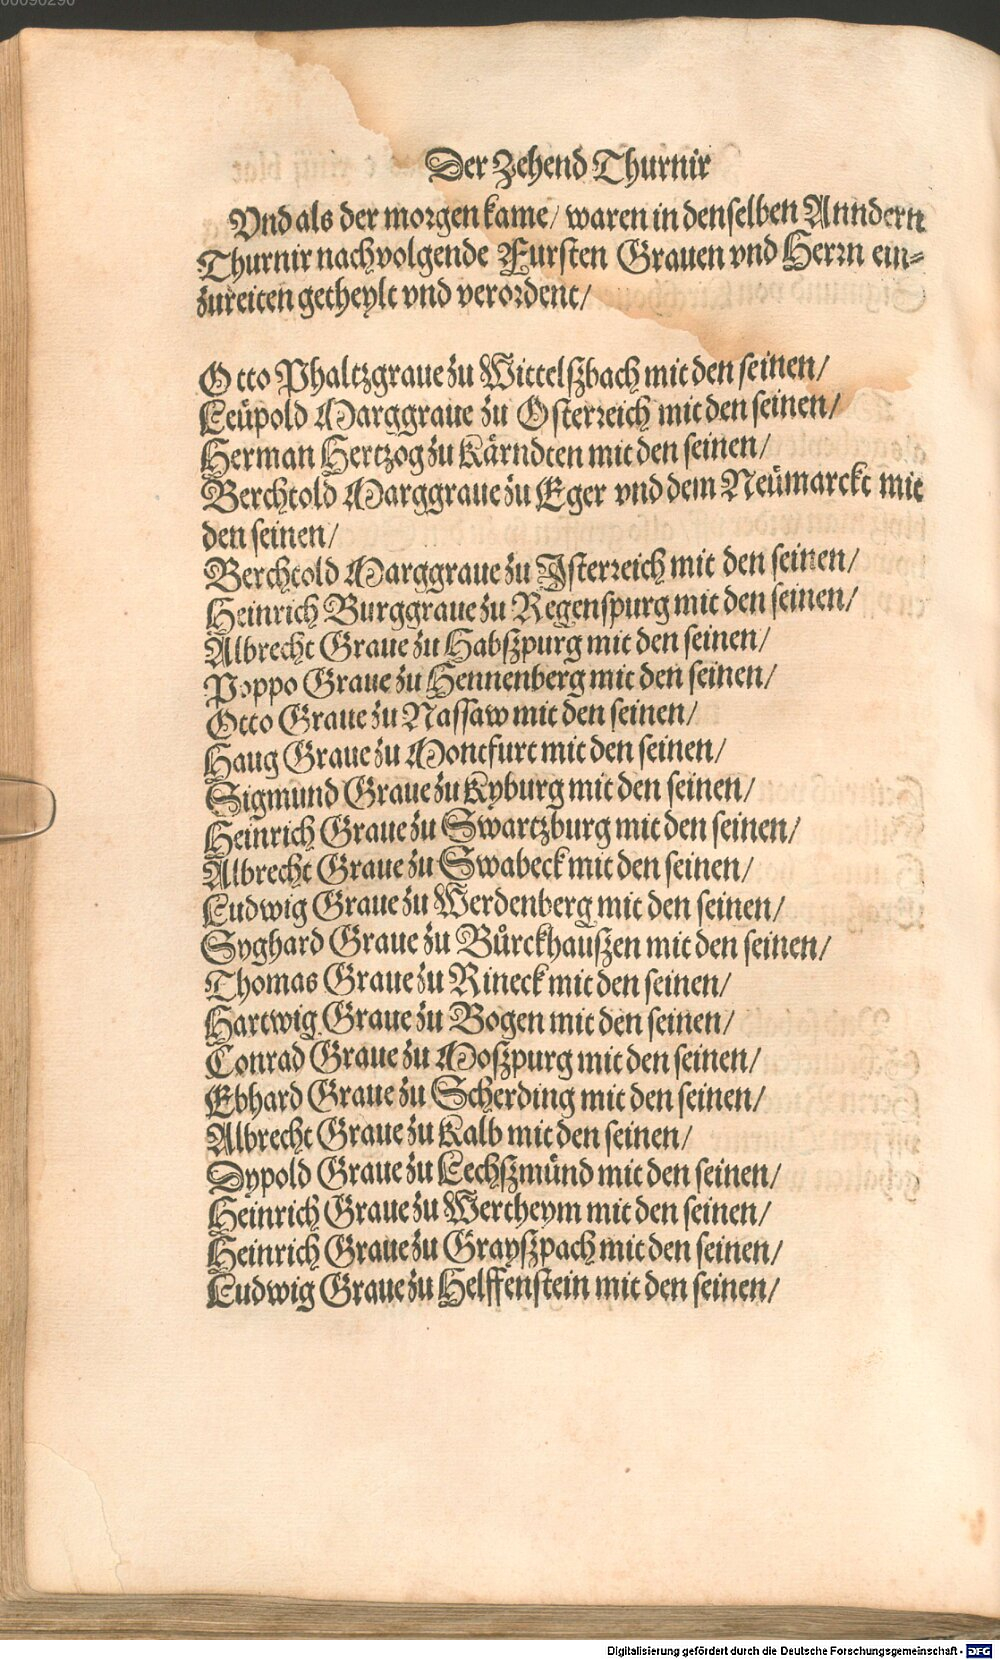 00090290
Der Zehend Thurnir
Vnd als der morgen kame/ waren in denselben Anndern
Thurnir nachuolgende Fursten Grauen vnd Herrn ein=
zureiten getheylt vnd verordent/
Otto Phaltzgraue zu Wittelszbach mit den seinen/
Leüpold Marggraue zu Osterreich mit den seinen/
Herman Hertzog zu Kärndten mit den seinen/
Berchtold Marggraue zu Eger vnd dem Neümarckt mit
den seinen/
Berchtold Marggraue zu Isterreich mit den seinen/
Heinrich Burggraue zu Regenspurg mit den seinen/
Albrecht Graue zu Habszpurg mit den seinen/
Poppo Graue zu Hennenberg mit den seinen/
Otto Graue zu Nassaw mit den seinen/
Haug Graue zu Montfurt mit den seinen/
Sigmund Graue zu Kyburg mit den seinen/
Heinrich Graue zu Swartzburg mit den seinen/
Albrecht Graue zu Swabeck mit den seinen/
Ludwig Graue zu Werdenberg mit den seinen/
Syghard Graue zu Bůrckhauszen mit den seinen/
Thomas Graue zu Rineck mit den seinen/
Hartwig Graue zu Bogen mit den seinen/
Conrad Graue zu Moszpurg mit den seinen/
Ebhard Graue zu Scherding mit den seinen/
Albrecht Graue zu Kalb mit den seinen/
Dypold Graue zu Lechszmünd mit den seinen/
Heinrich Graue zu Wertheym mit den seinen/
Heinrich Graue zu Grayszpach mit den seinen/
Ludwig Graue zu Helffenstein mit den seinen/
Digitalisierung gefördert durch die Deutsche Forschungsgemeinschaft - DFG